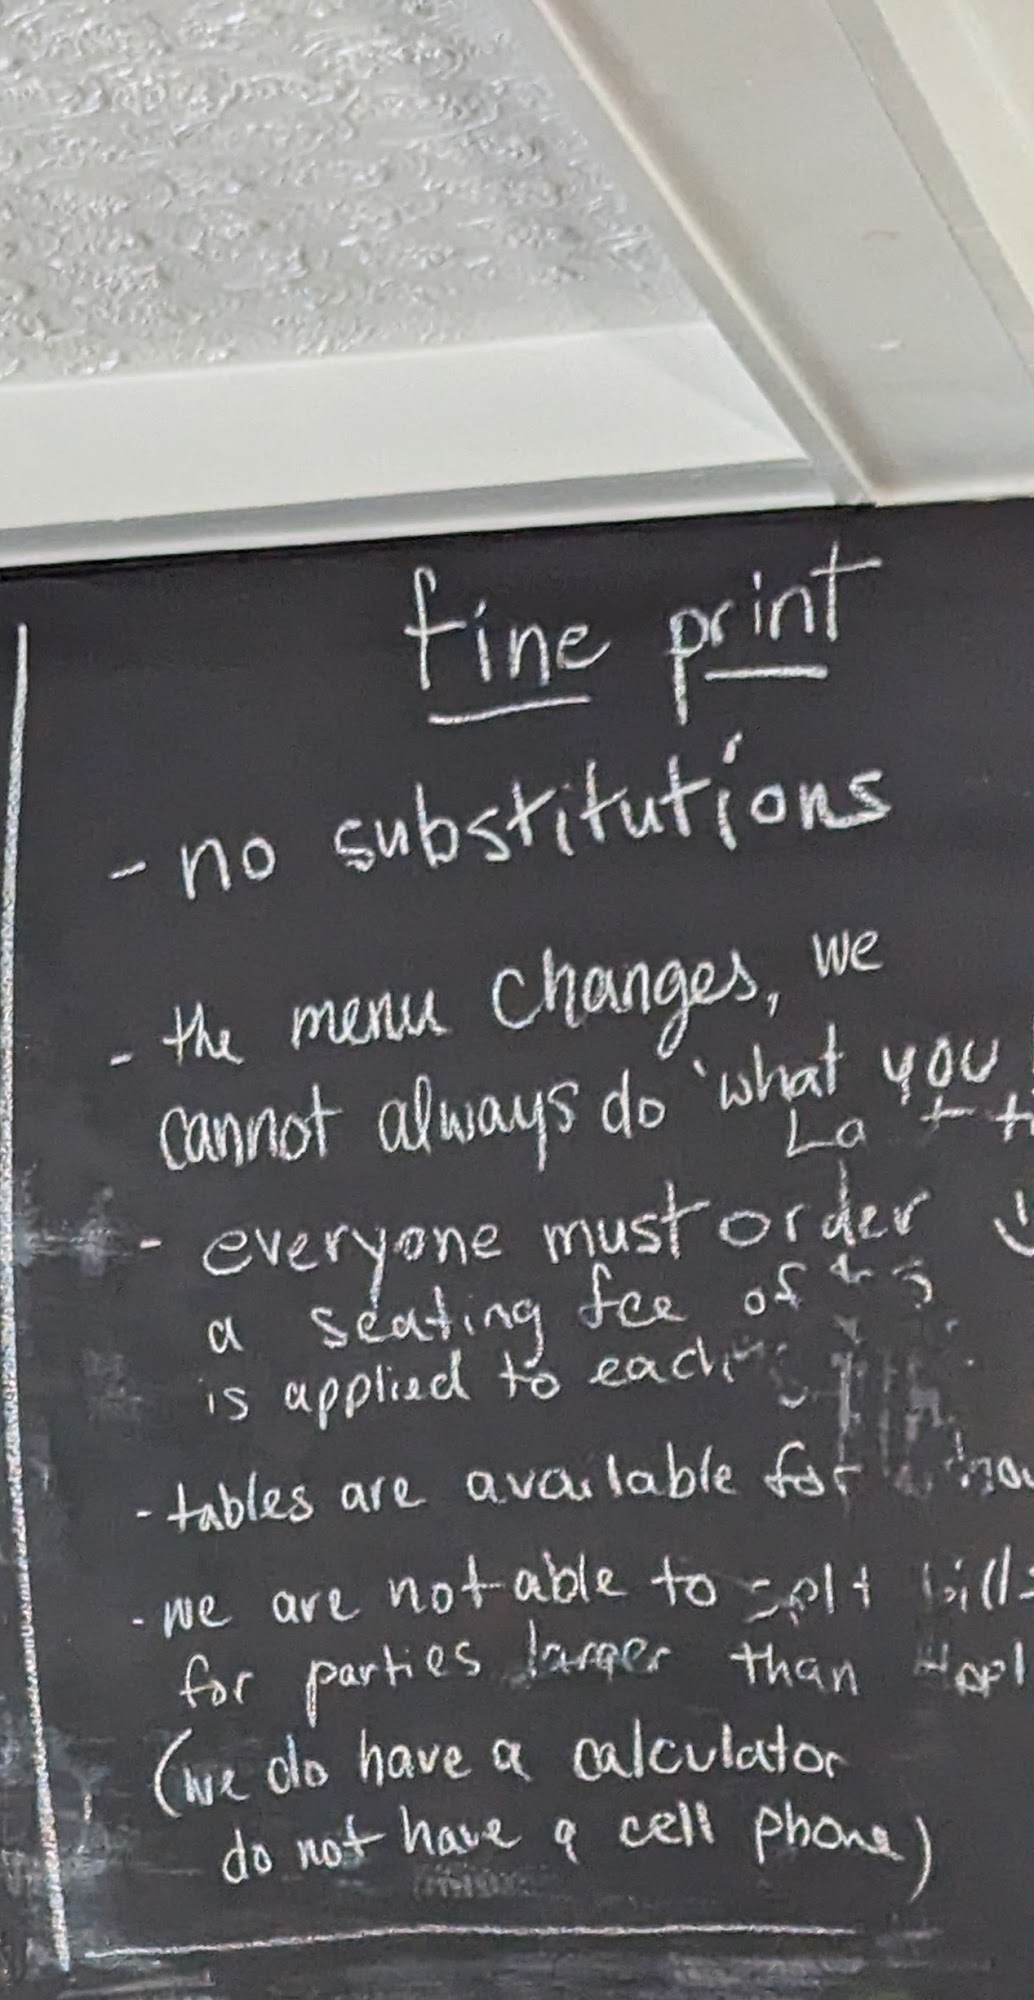 fine print
- no substitutions
- the menu changes, we
cannot always do what you
La t t
- everyone must order
a seating fee of
is applied to each
- tables are available for
- we are not able to split bills
for parties larger than 4
(we do have a calculator
do not have a cell phone)